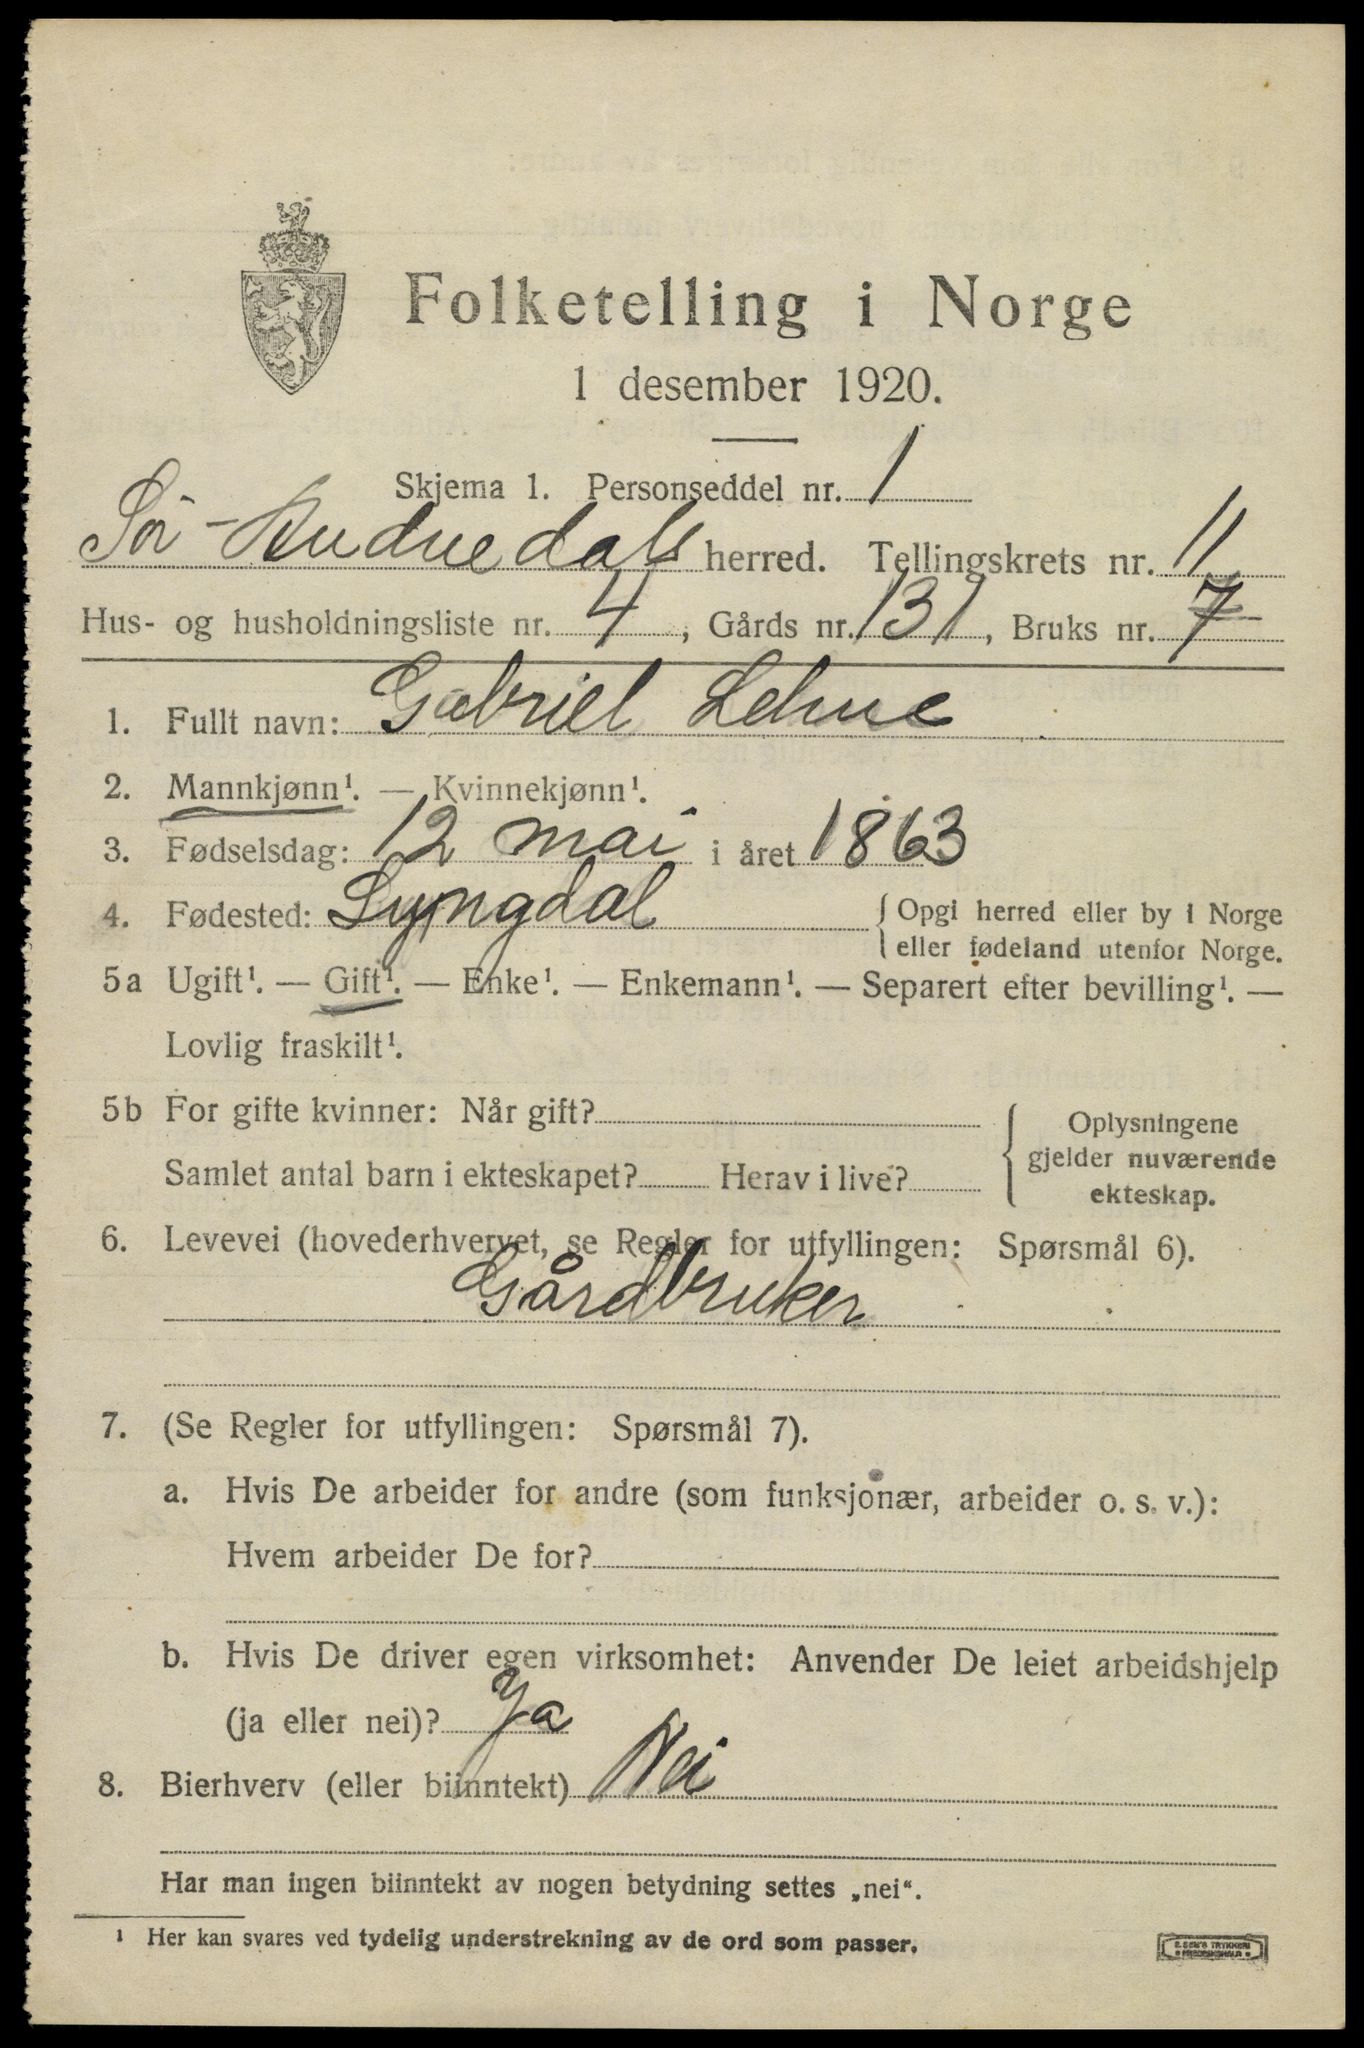 Folketelling i Norge
1 desember 1920.
Skjema 1. Personseddel nr. 1
Sör-Audnedals herred. Tellingskrets nr. 11
Hus- og husholdningsliste nr. 4, Gårds nr. 131, Bruks nr. 7
1. Fullt navn: Gabriel Lehne
2. Mannkjønn¹. — Kvinnekjønn¹.
3. Fødselsdag: 12 mai i året 1863
4. Fødested: Lyngdal { Opgi herred eller by i Norge
eller fødeland utenfor Norge.
5a Ugift¹. — Gift¹. — Enke¹. — Enkemann¹. — Separert efter bevilling¹. —
Lovlig fraskilt¹.
5b For gifte kvinner: Når gift? { Oplysningene
gjelder nuværende
Samlet antal barn i ekteskapet? Herav i live?
ekteskap.
6. Levevei (hovederhvervet, se Regler for utfyllingen: Spørsmål 6).
Gårdbruker
7. (Se Regler for utfyllingen: Spørsmål 7).
a. Hvis De arbeider for andre (som funksjonær, arbeider o. s. v.):
Hvem arbeider De for?
b. Hvis De driver egen virksomhet: Anvender De leiet arbeidshjelp
(ja eller nei)? Ja
8. Bierhverv (eller biinntekt) Nei
Har man ingen biinntekt av nogen betydning settes „nei“.
¹ Her kan svares ved tydelig understrekning av de ord som passer.